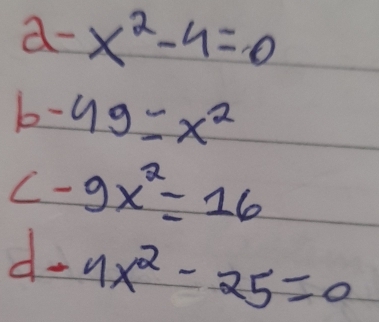 a- x² - 4 = 0
b- 49 = x²
c- 9x² = 16
d- 4x² - 25 = 0